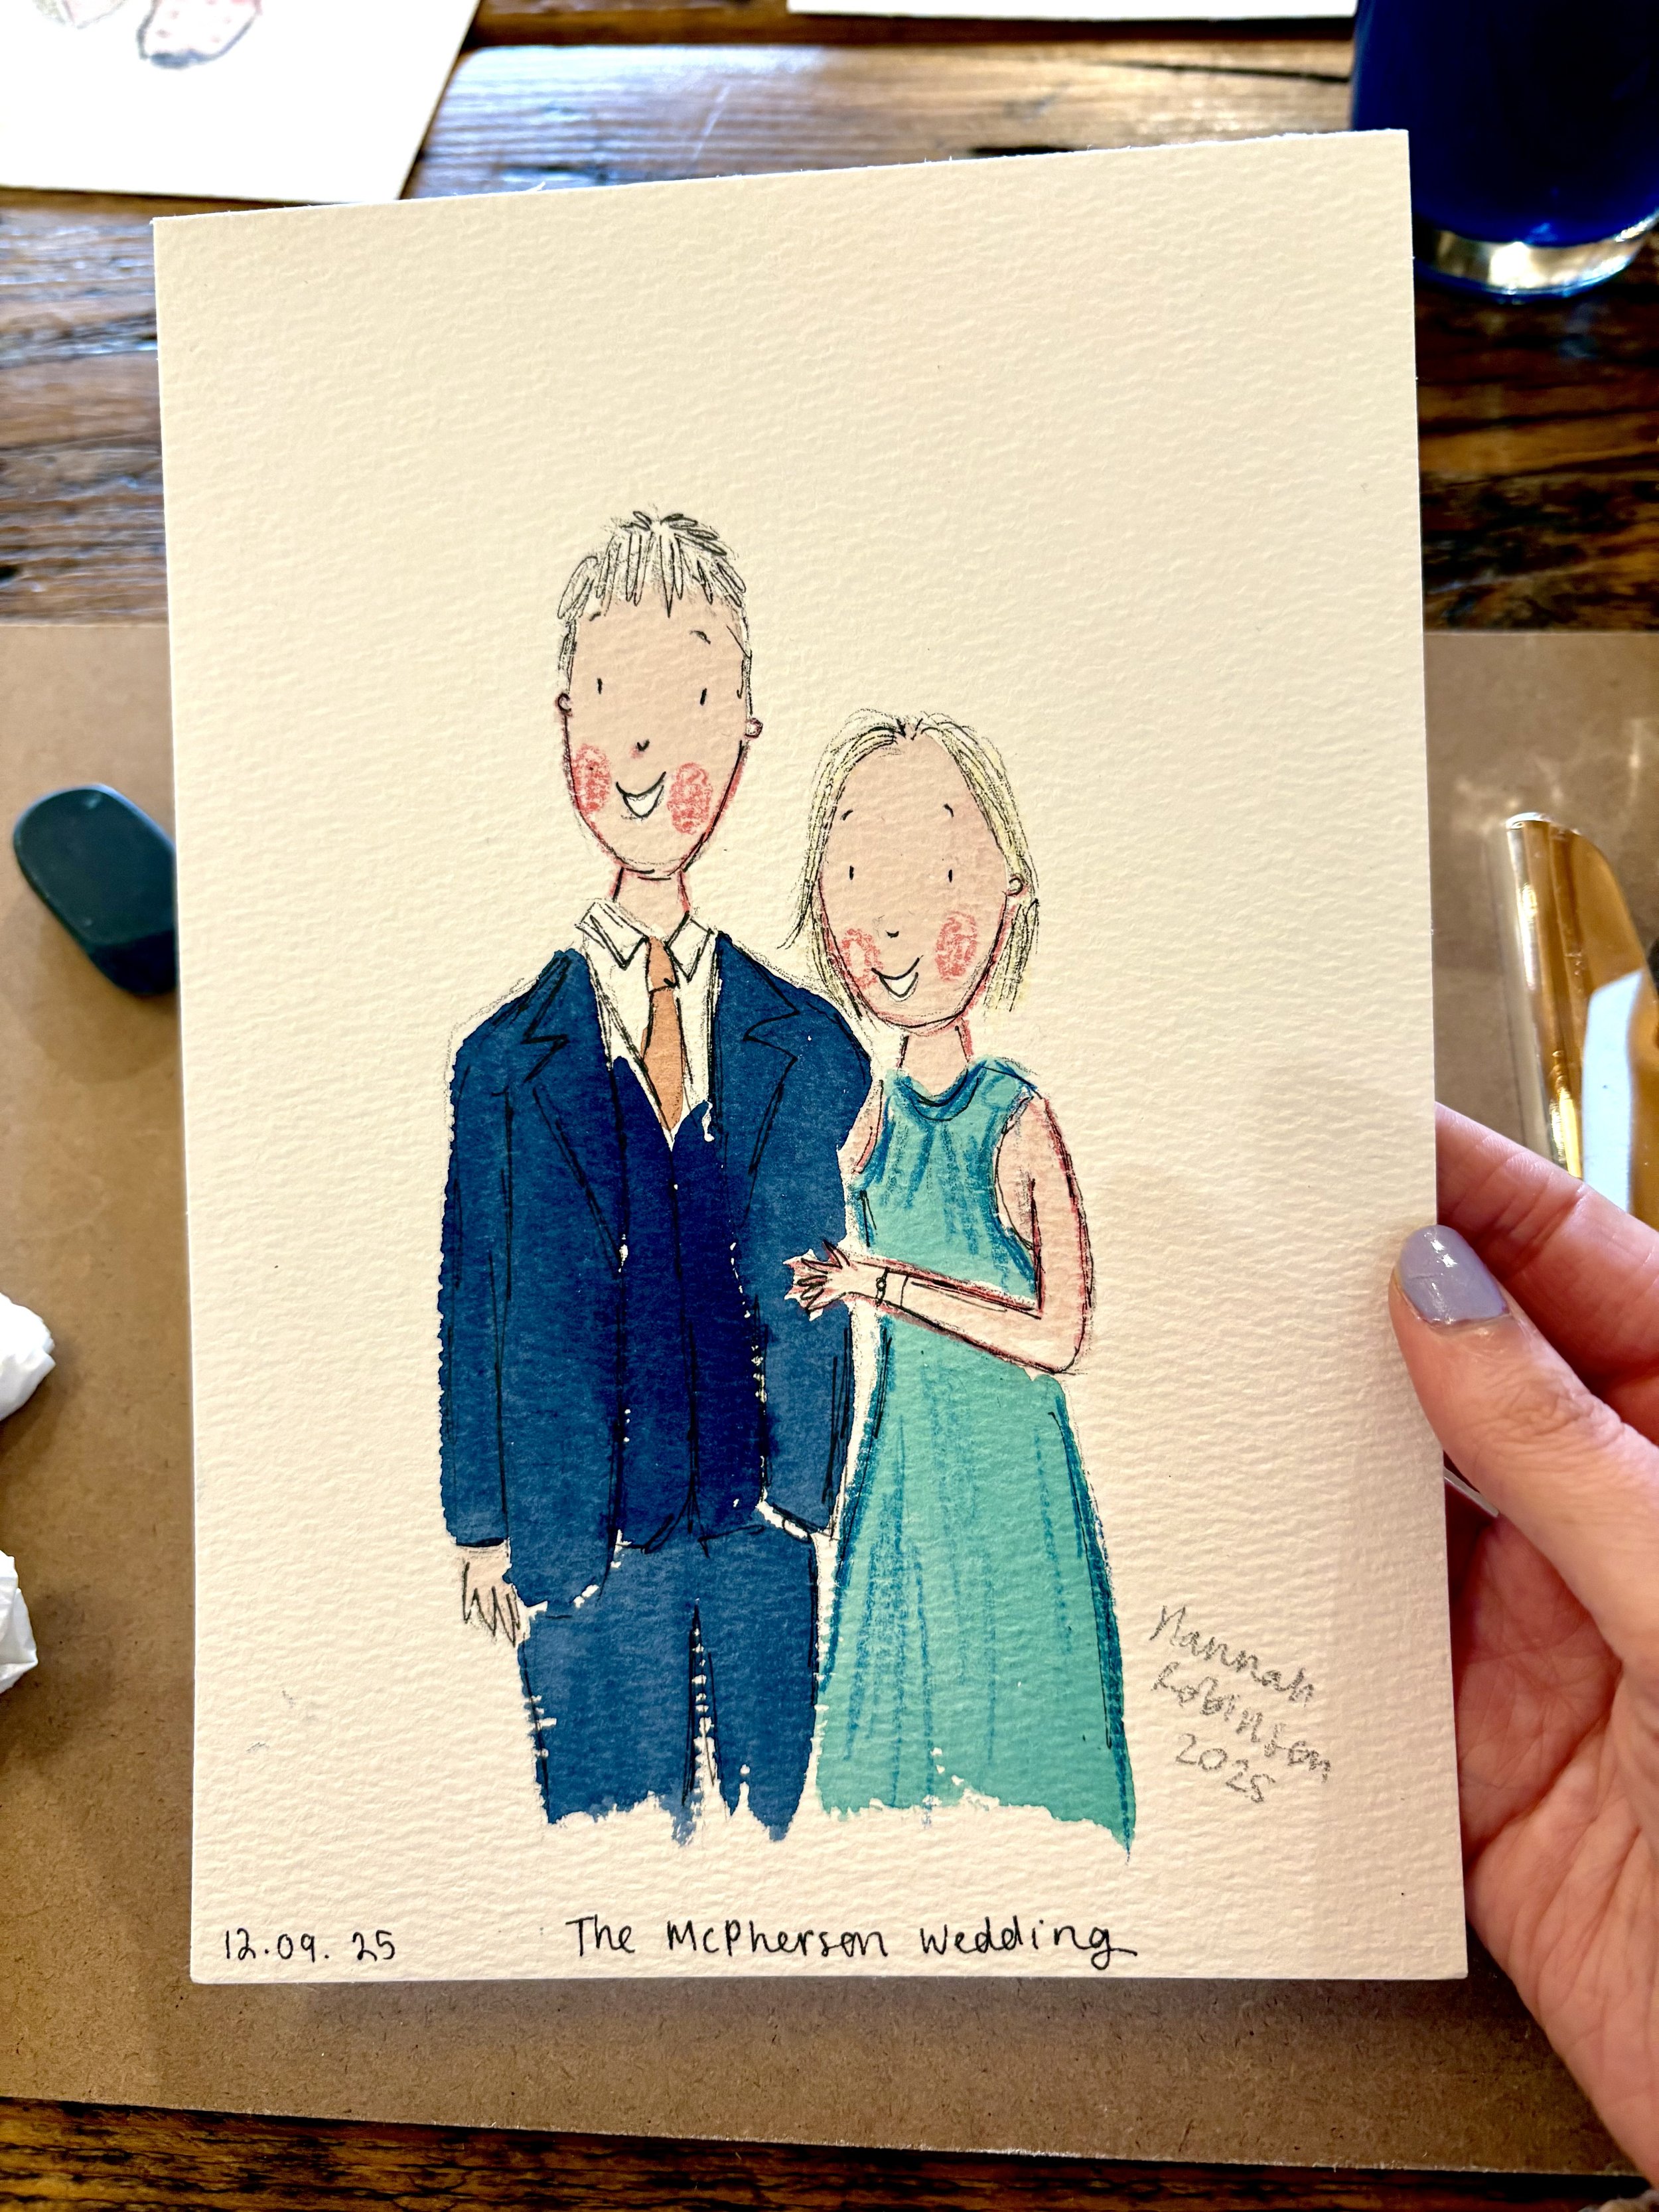 Hannah
Robinson
2025
12.09.25 The McPherson Wedding